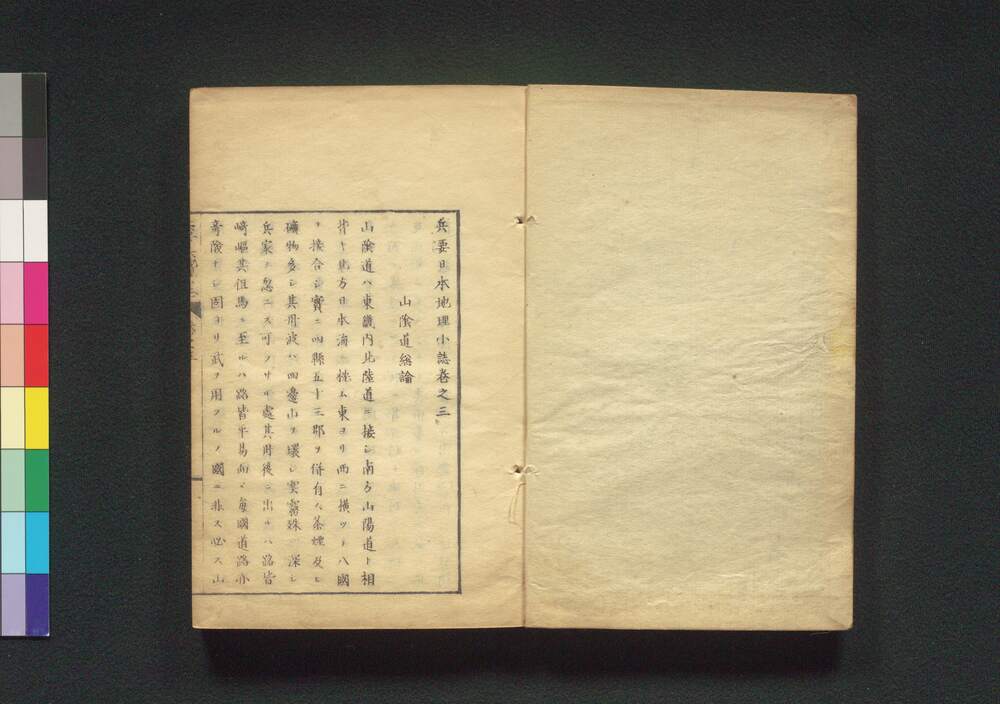 兵要日本地理小誌巻之三
山陰道総論
山陰道ハ東畿内北陸道ニ接シ南ハ山陽道ト相
背キ北方日本海ニ枕ム東ヨリ西ニ横ツテ八國
ヲ接合シ實ニ四縣五十三郡ヲ併有ス茶烟及ヒ
礦物多シ其丹波ハ四邊山ヲ環シ雲霧殊ニ深シ
兵家ノ忽ニス可ラサル處其丹後ニ出ルハ路皆
崎嶇其但馬ニ至ルハ路皆平易而シ毎國道路亦
奇險ナシ固ヨリ武ヲ用フルノ國ニ非ス必ス山